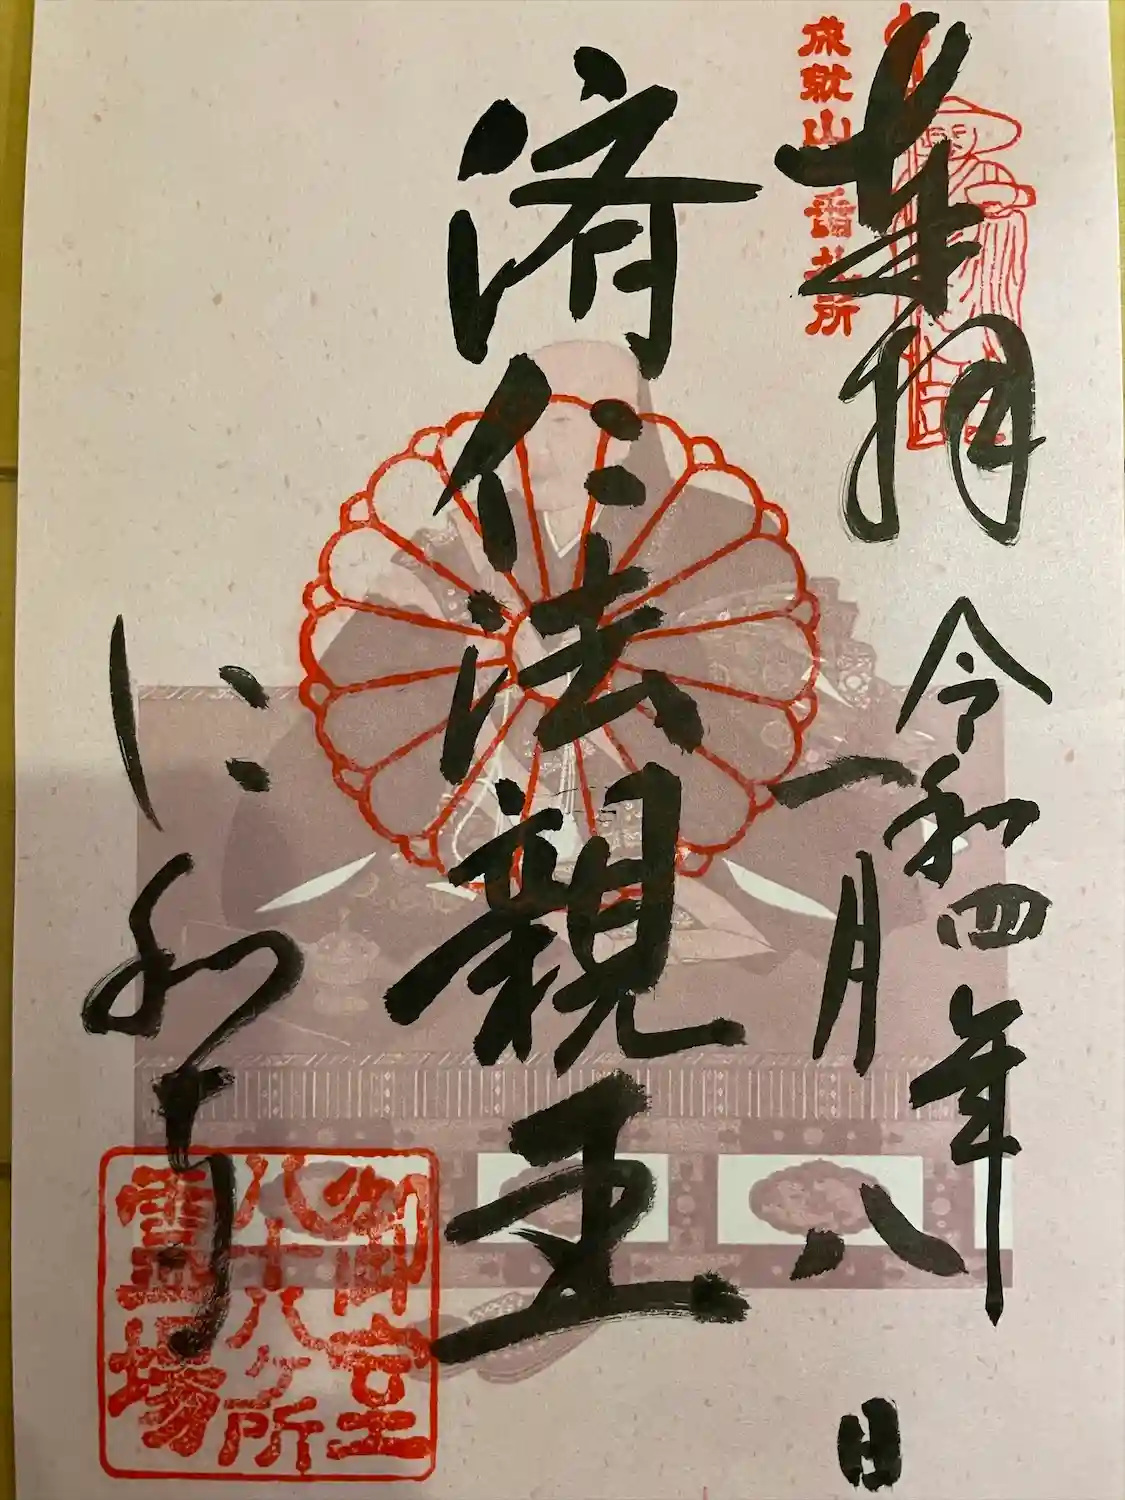 成就山 番札所
奉拝
令和四年
一月八日
済仁法親王
仁和寺
御室
八十八ヶ所
霊場